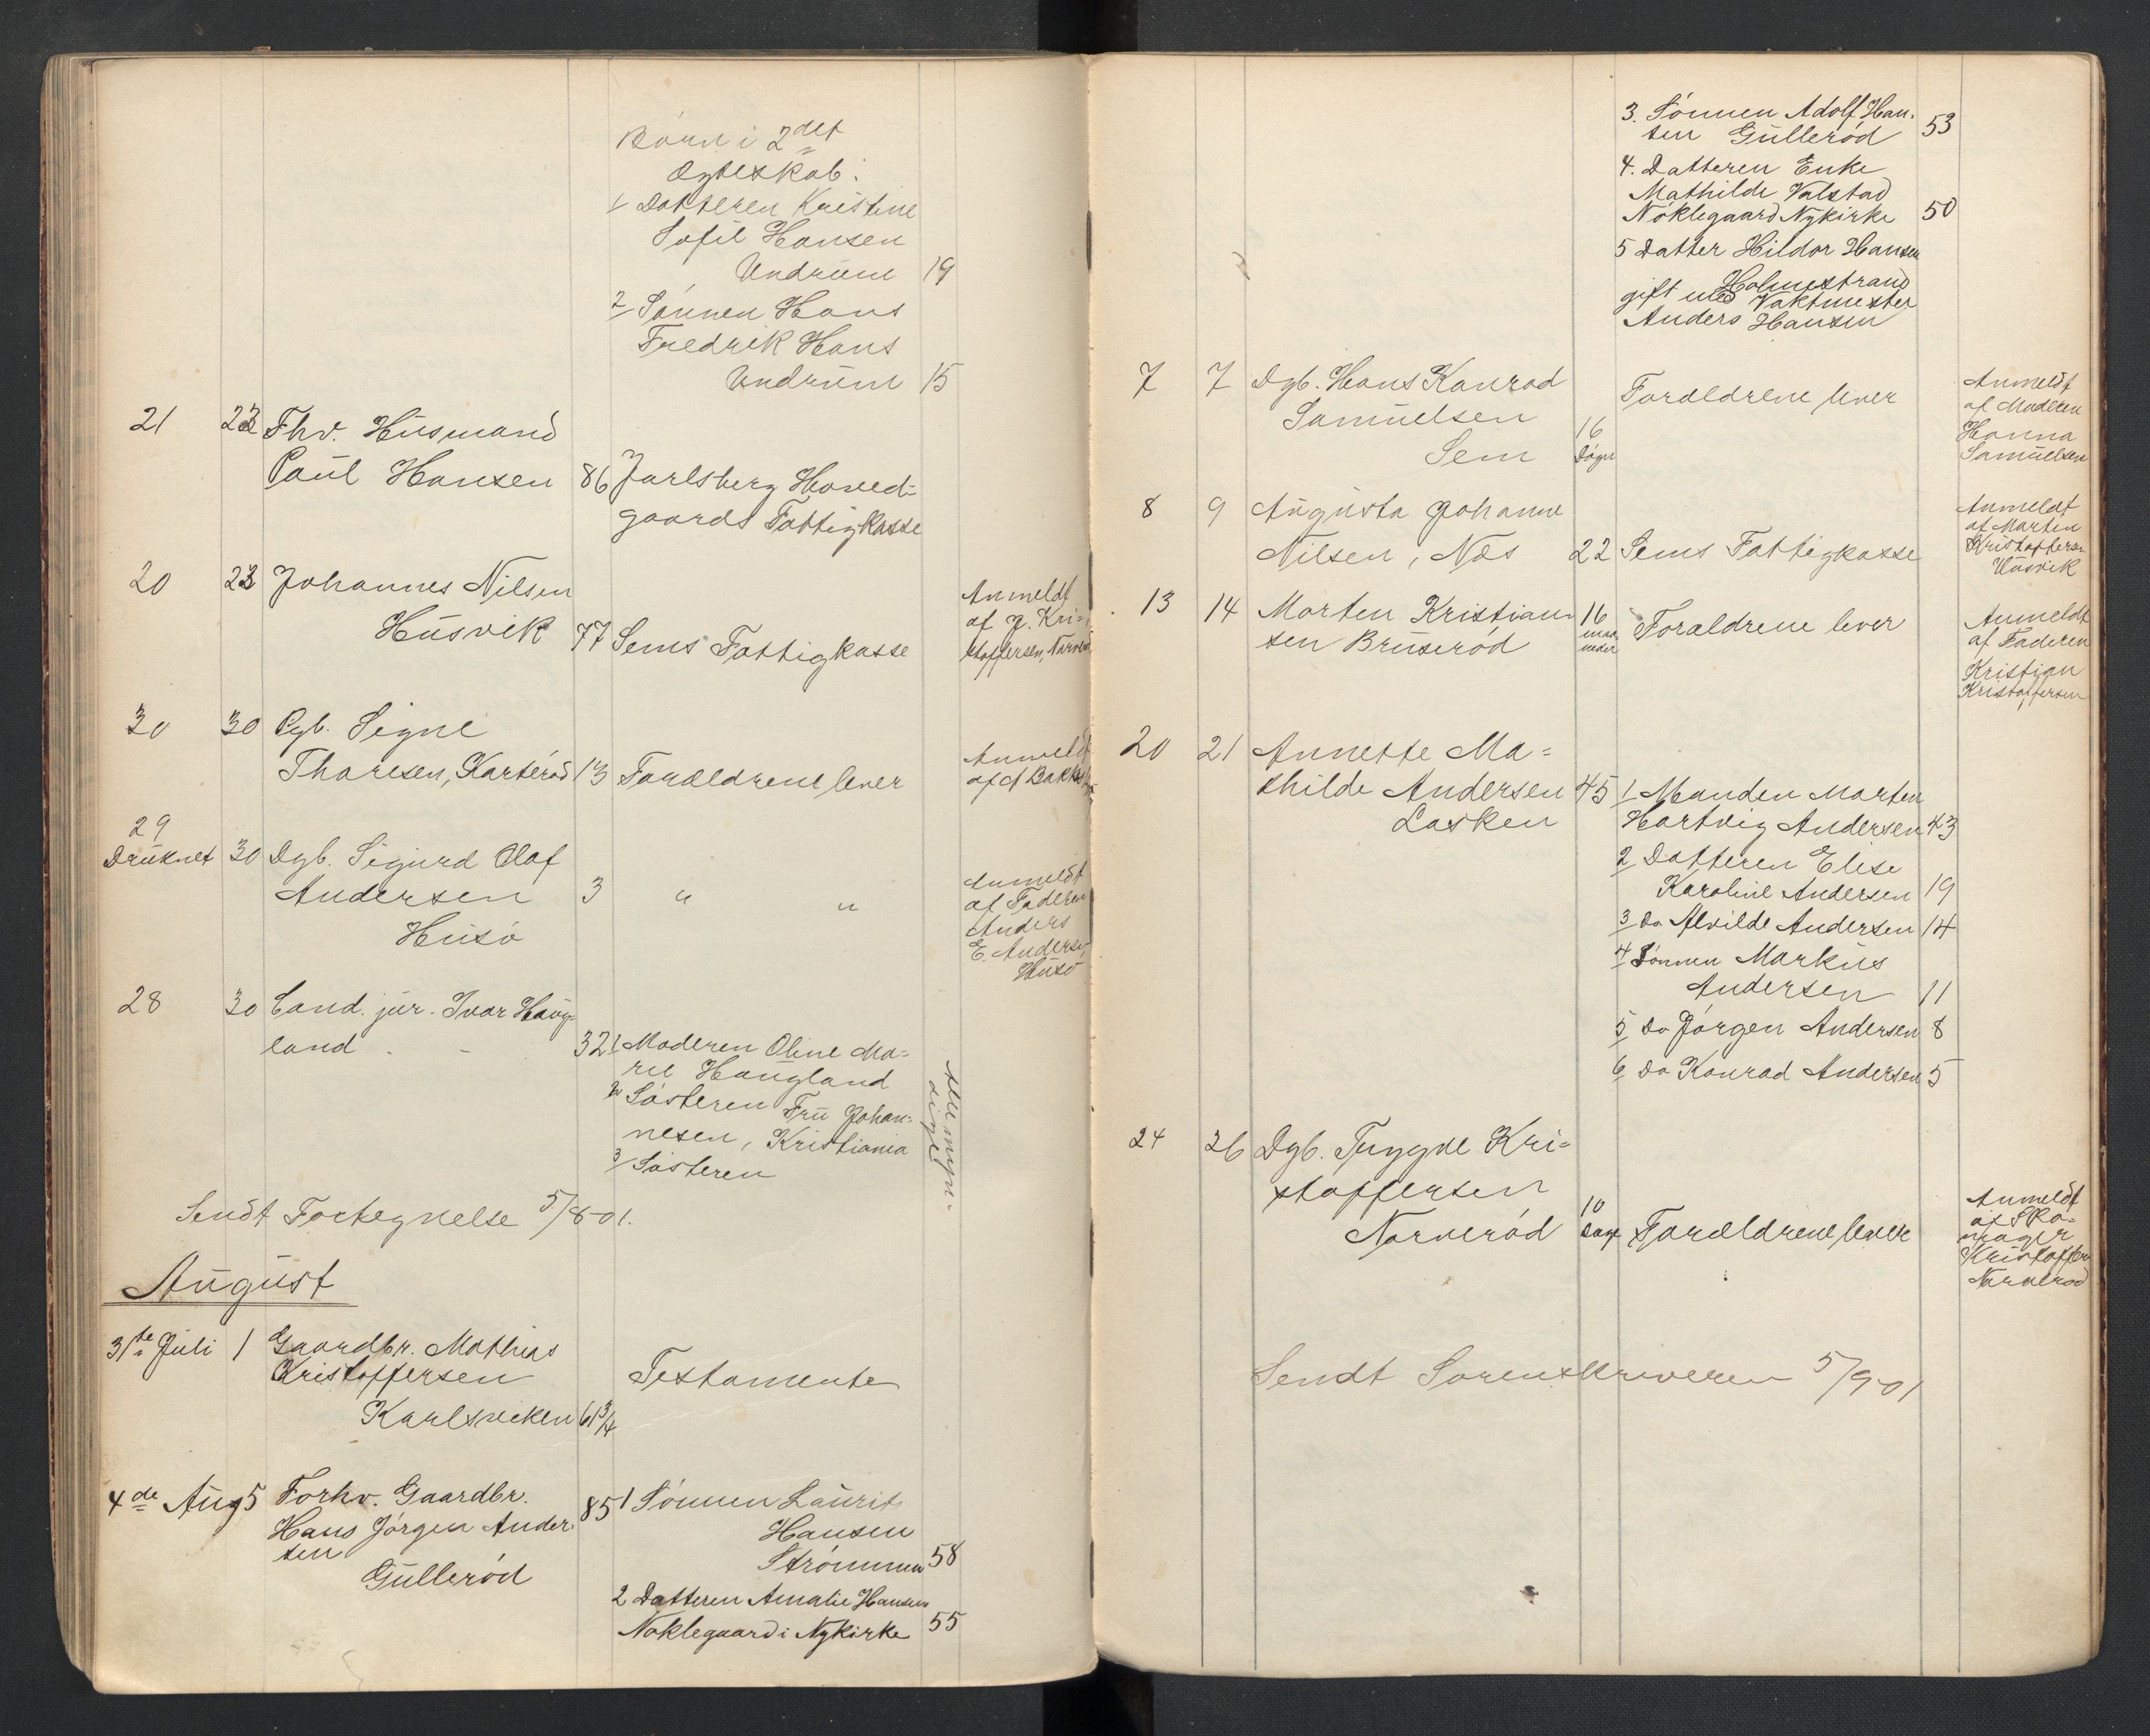 Børn i 2det
Ægteskab:
1 Datteren Kristine
Sofie Hansen
Undrum 19
2 Sønnen Hans
Fredrik Hans
Undrum 15
21 22 Fhv. Husmand
Paul Hansen 86 Jarlsberg Hoved-
gaards Fattigkasse
20 23 Johannes Nilsen
Husvik 77 Sems Fattigkasse
Anmeldt
af J. Kri-
stoffersen, Narverød
30 30 Pgb. Signe
Thoresen, Karterød 13 Forældrene lever
Anmeldt
af A Bakke
29
Druknet 30 Dgb. Sigurd Olaf
Andersen 3 " "
Husø
Anmeldt
af Faderen
Anders
E. Andersen,
Husø
28 30 Cand. jur. Ivar Haug-
land 32 1 Moderen Oline Ma-
rie Haugland
2 Søsteren Fru Johan-
nesen, Kristiania
3 Søsteren
Alle myn-
dige
Sendt Fortegnelse 5/8 01.
August
31te Juli 1 Gaardbr. Mathias
Kristoffersen Testamente
Karlsviken 61 3/4
4de Aug 5 Forhv. Gaardbr. 85 1 Sønnen Laurits
Hans Jørgen Ander- Hansen
sen Strømmen 58
Gullerød
2 Datteren Amalie Hansen
Nøklegaard i Nykirke 55
3. Sønnen Adolf Han-
sen Gullerød 53
4. Datteren Enke
Mathilde Valstad
Nøklegaard Nykirke 50
5 Datter Hildor Hansen
Holmestrand
gift med Vaktmester
Anders Hansen
7 7 Dgb. Hans Konrad
Samuelsen 16 Forældrene lever
Sem Døgn
Anmeldt
af Moderen
Hanna
Samuelsen
8 9 Augusta Johanne
Nilsen, Næs 22 Sems Fattigkasse
Anmeldt
af Martin
Kristoffersen
Husvik
13 14 Morten Kristian- 16
sen Bruserød maa- Forældrene lever
neder
Anmeldt
af Faderen
Kristian
Kristoffersen
20 21 Annette Ma-
thilde Andersen 45 1 Manden Morten
Løsken Hartvig Andersen 43
2 Datteren Elise
Karoline Andersen 19
3 Do Alvilde Andersen 14
4 Sønnen Markus
Andersen 11
5 Do Jørgen Andersen 8
6 Do Konrad Andersen 5
24 26 Dgb. Trygve Kri-
stoffersen 10
Narverød Dage Forældrene lever
Anmeldt
af Sko-
mager
Kristoffersen
Narverød
Sendt Sorenskriveren 5/9 01